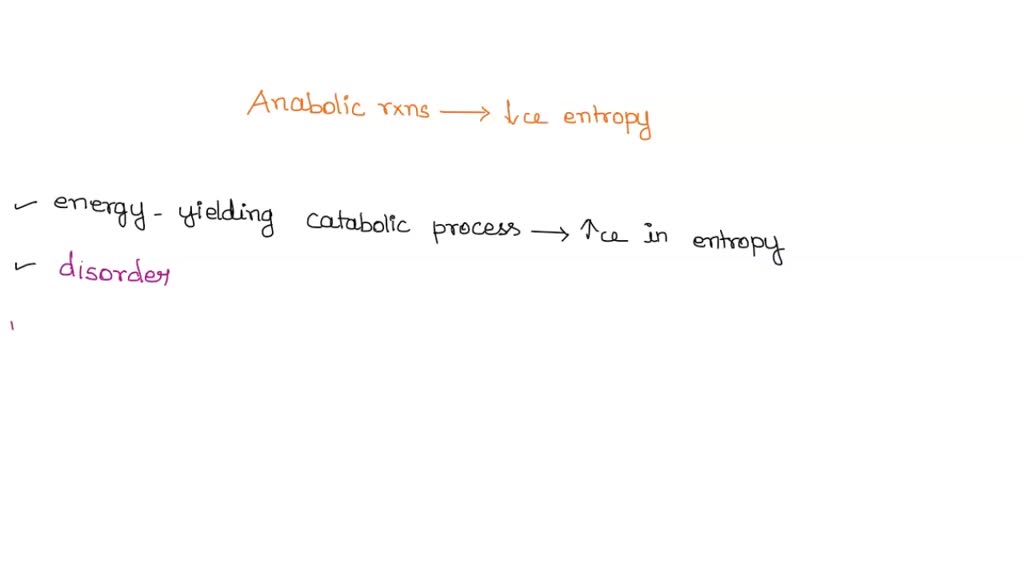 Anabolic rxns → ↓ce entropy
✓ energy-yielding catabolic process → ↑ce in entropy
✓ disorder